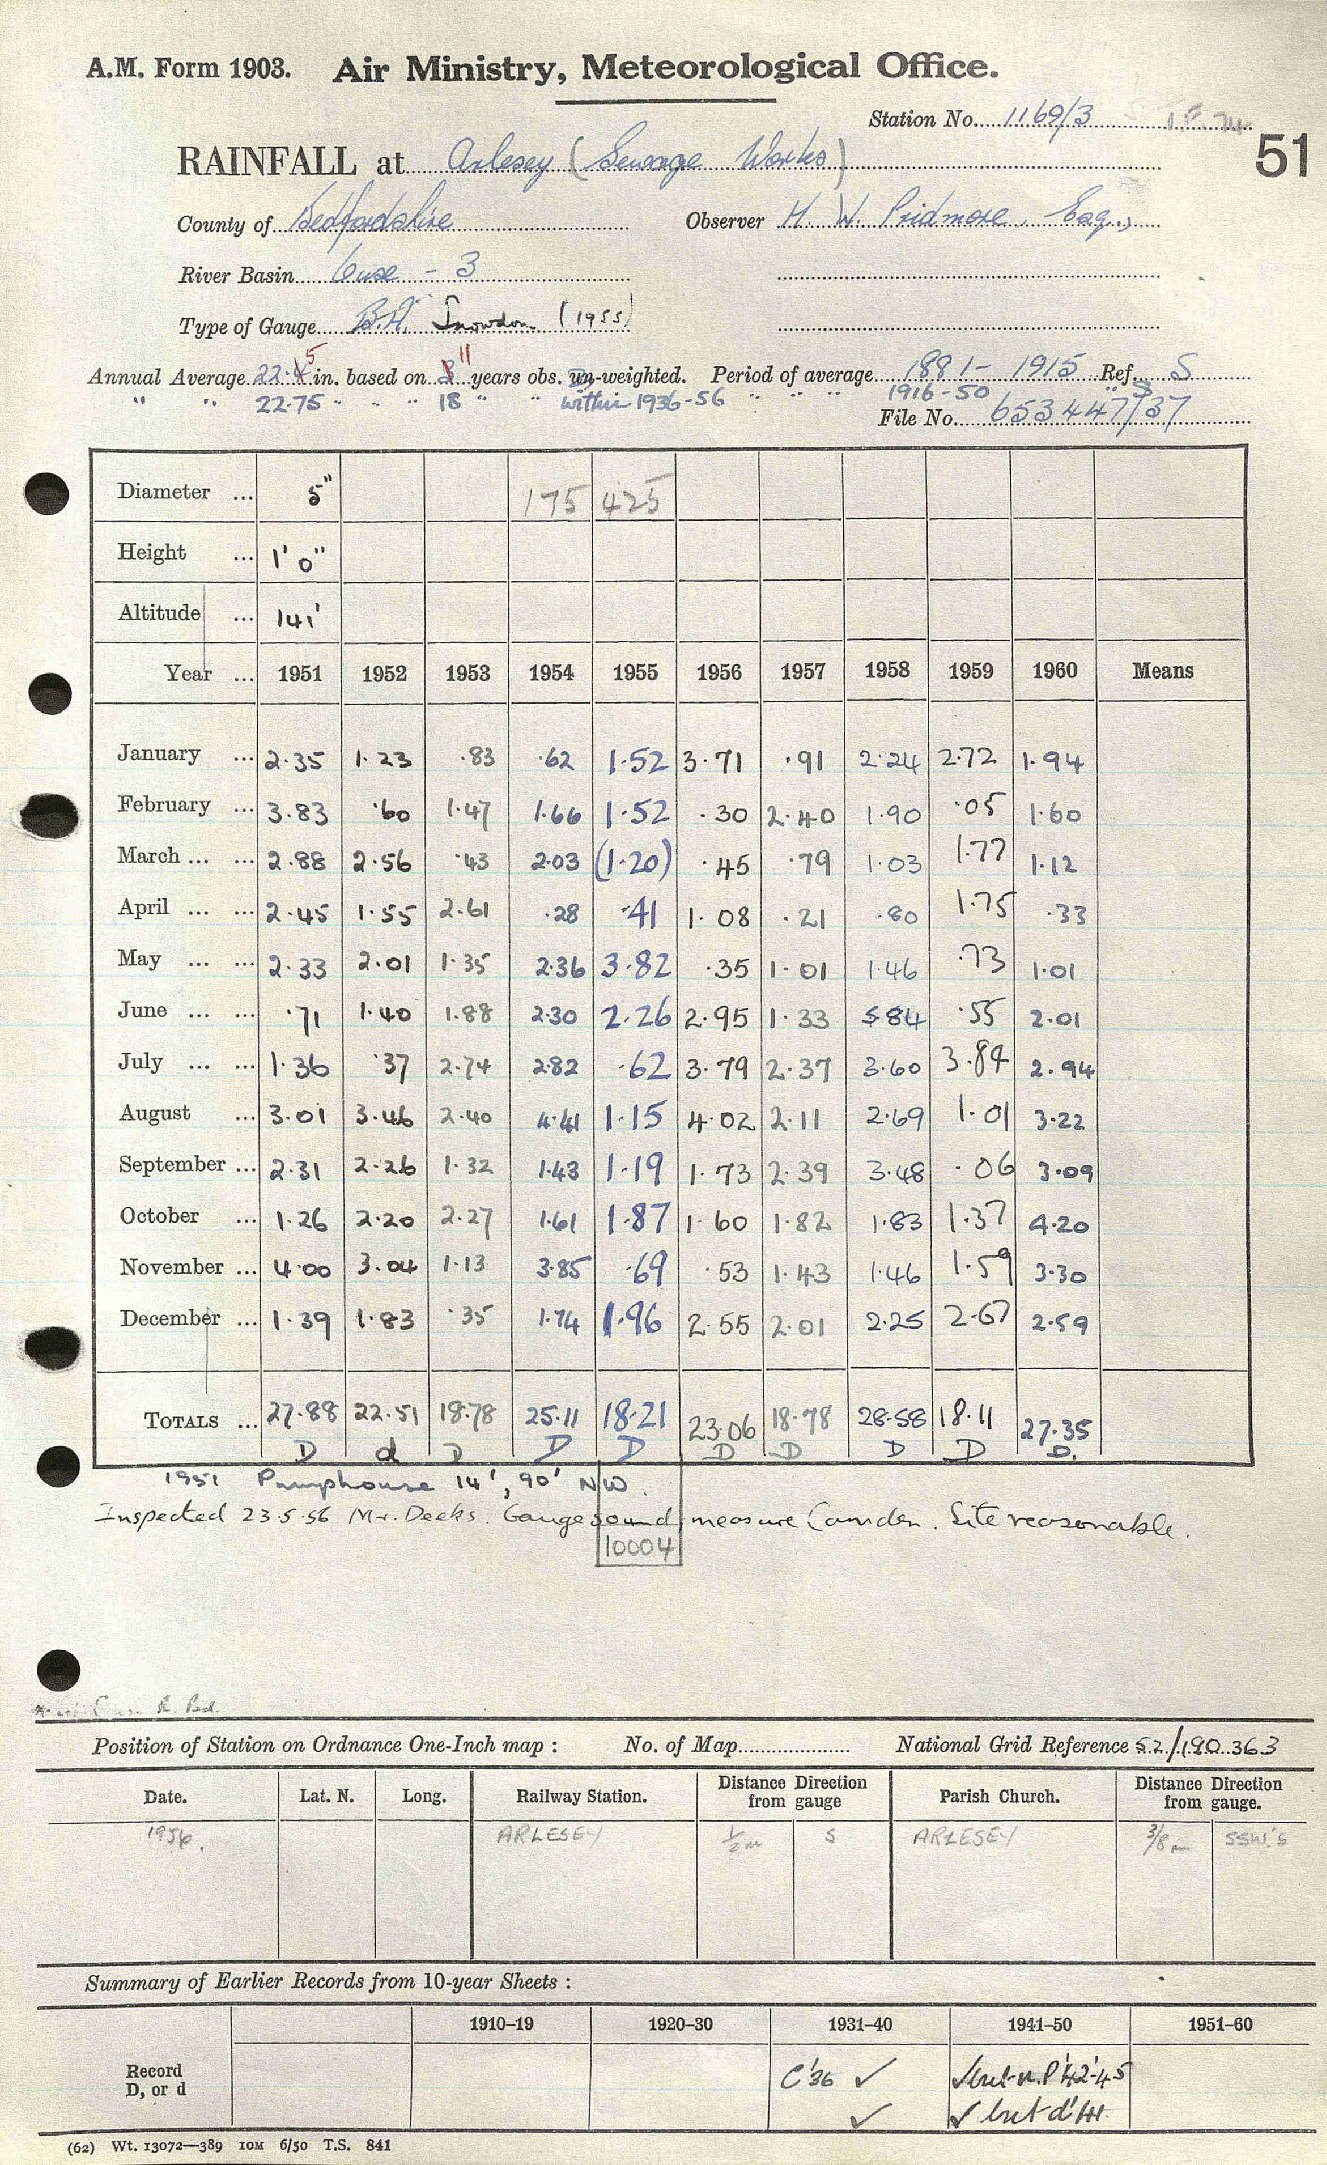 A.M. Form 1903. Air Ministry, Meteorological Office.
Station No. 1169/3
51
RAINFALL at Arlesey (Sewage Works)
County of Bedfordshire Observer H. W. Pridmore, Esq.,
River Basin Ouse - 3
Type of Gauge B.H. Snowdon (1955)
5 11
Annual Average 22.4 in. based on 8 years obs. un-weighted. Period of average 1881 - 1915 Ref. S
" " 22.75 " " " 18 " " within 1936-56 " " " 1916-50 " S
File No. 653447/37
Diameter ... 5" 175 425
Height ... 1' 0"
Altitude ... 141'
Year ... 1951 1952 1953 1954 1955 1956 1957 1958 1959 1960 Means
January ... 2.35 1.23 .83 .62 1.52 3.71 .91 2.24 2.72 1.94
February ... 3.83 .60 1.47 1.66 1.52 .30 2.40 1.90 .05 1.60
March ... ... 2.88 2.56 .43 2.03 (1.20) .45 .79 1.03 1.77 1.12
April ... ... 2.45 1.55 2.61 .28 .41 1.08 .21 .80 1.75 .33
May ... ... 2.33 2.01 1.35 2.36 3.82 .35 1.01 1.46 .73 1.01
June ... ... .71 1.40 1.88 2.30 2.26 2.95 1.33 5.84 .55 2.01
July ... ... 1.36 .37 2.74 2.82 .62 3.79 2.37 3.60 3.84 2.94
August ... 3.01 3.46 2.40 4.41 1.15 4.02 2.11 2.69 1.01 3.22
September ... 2.31 2.26 1.32 1.43 1.19 1.73 2.39 3.48 .06 3.09
October ... 1.26 2.20 2.27 1.61 1.87 1.60 1.82 1.83 1.37 4.20
November ... 4.00 3.04 1.13 3.85 .69 .53 1.43 1.46 1.59 3.30
December ... 1.39 1.83 .35 1.74 1.96 2.55 2.01 2.25 2.67 2.59
TOTALS ... 27.88 22.51 18.78 25.11 18.21 23.06 18.78 28.58 18.11 27.35
D d D D D D D D D D.
1951 Pumphouse 14', 90' NW.
Inspected 23.5.56 Mr. Deeks. Gauge sound, measure Camden. Site reasonable.
10004
Position of Station on Ordnance One-Inch map : No. of Map National Grid Reference 52/190.363
Date. Lat. N. Long. Railway Station. Distance Direction from gauge Parish Church. Distance Direction from gauge.
1956. ARLESEY 1/2 m S ARLESEY 3/8 m SSW'S
Summary of Earlier Records from 10-year Sheets :
1910–19 1920–30 1931–40 1941–50 1951–60
Record C'36 ✓ ✓ but n.P '42-'45
D, or d ✓ ✓ but d'41
(62) Wt. 13072—389 10M 6/50 T.S. 841